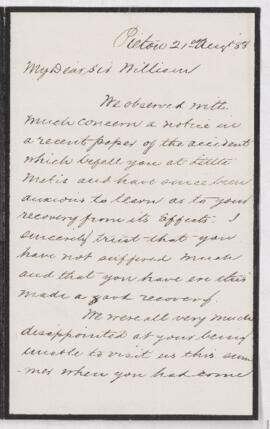 Pictou 21st Augt 88
My Dear Sir William
We observed with
much concern a notice in
a recent paper of the accident
which befell you at Little
Metis and have since been
anxious to learn as to your
recovery from its effects. I
sincerely trust that you
have not suffered much
and that you have ere this
made a good recovery.
We were all very much
disappointed at your being
unable to visit us this sum-
mer when you had come